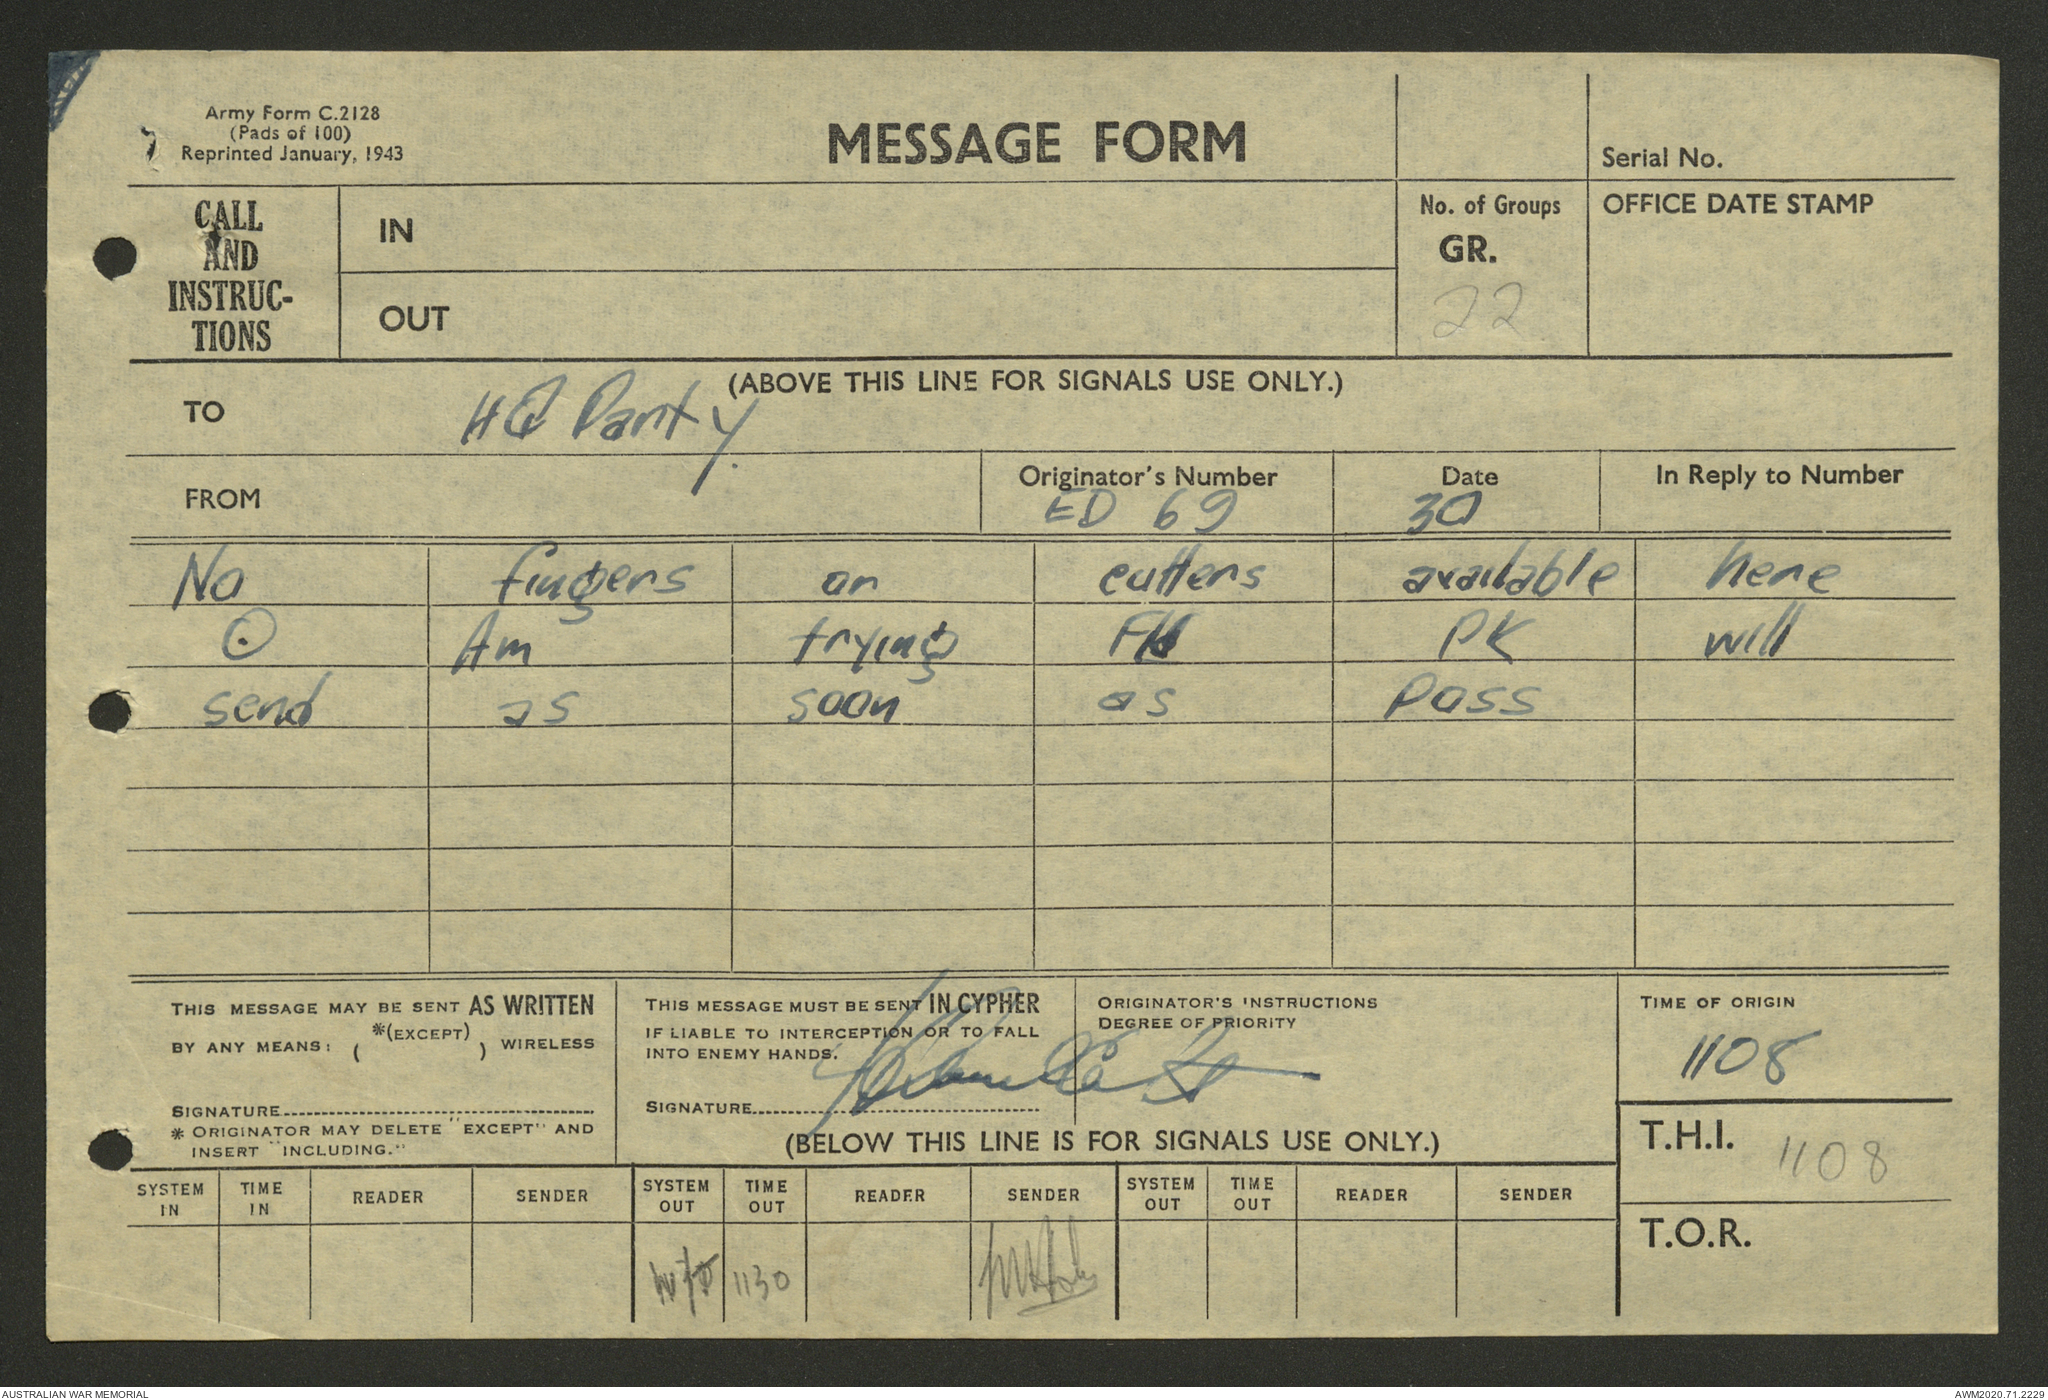 Army Form C.2128
(Pads of 100)
Reprinted January, 1943
MESSAGE FORM
Serial No.
CALL
AND
INSTRUC-
TIONS
IN
OUT
No. of Groups
GR.
22
OFFICE DATE STAMP
(ABOVE THIS LINE FOR SIGNALS USE ONLY.)
TO HQ Party.
FROM
Originator's Number
ED 69
Date
30
In Reply to Number
No fingers or cutters available here
⊙ Am trying PK will
send as soon as poss
THIS MESSAGE MAY BE SENT AS WRITTEN
*(EXCEPT)
BY ANY MEANS: ( ) WIRELESS
SIGNATURE
* ORIGINATOR MAY DELETE "EXCEPT" AND
INSERT "INCLUDING."
THIS MESSAGE MUST BE SENT IN CYPHER
IF LIABLE TO INTERCEPTION OR TO FALL
INTO ENEMY HANDS.
SIGNATURE
ORIGINATOR'S INSTRUCTIONS
DEGREE OF PRIORITY
TIME OF ORIGIN
1108
(BELOW THIS LINE IS FOR SIGNALS USE ONLY.)
T.H.I. 1108
T.O.R.
SYSTEM IN
TIME IN
READER
SENDER
SYSTEM OUT
TIME OUT
READER
SENDER
SYSTEM OUT
TIME OUT
READER
SENDER
1130
AUSTRALIAN WAR MEMORIAL
AWM2020.71.2229